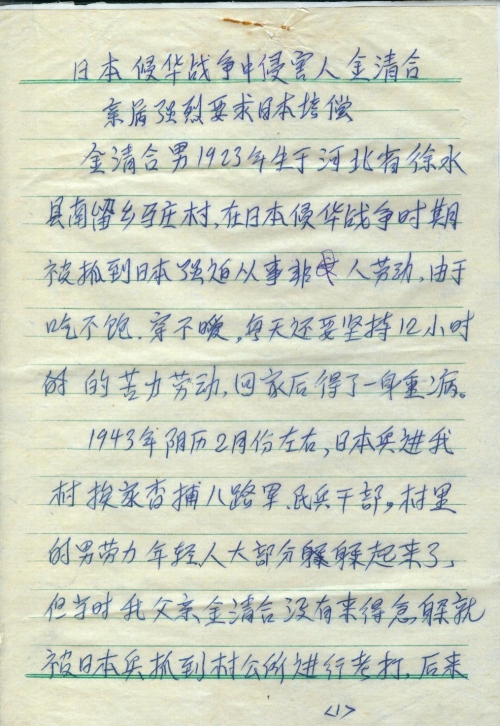 日本侵华战争中侵害人金清合
亲属强烈要求日本培偿
金清合男1923年生于河北省徐水
县南留乡马庄村,在日本侵华战争时期
被抓到日本强迫从事非人劳动,由于
吃不饱、穿不暖,每天还要坚持12小时
的苦力劳动,回家后得了一身重病。
1943年阴历2月份左右,日本兵进我
村挨家查捕八路军、民兵干部,村里
的男劳力年轻人大部分躲躲起来了,
但当时我父亲金清合没有来得急躲就
被日本兵抓到村公所进行考打,后来
<1>